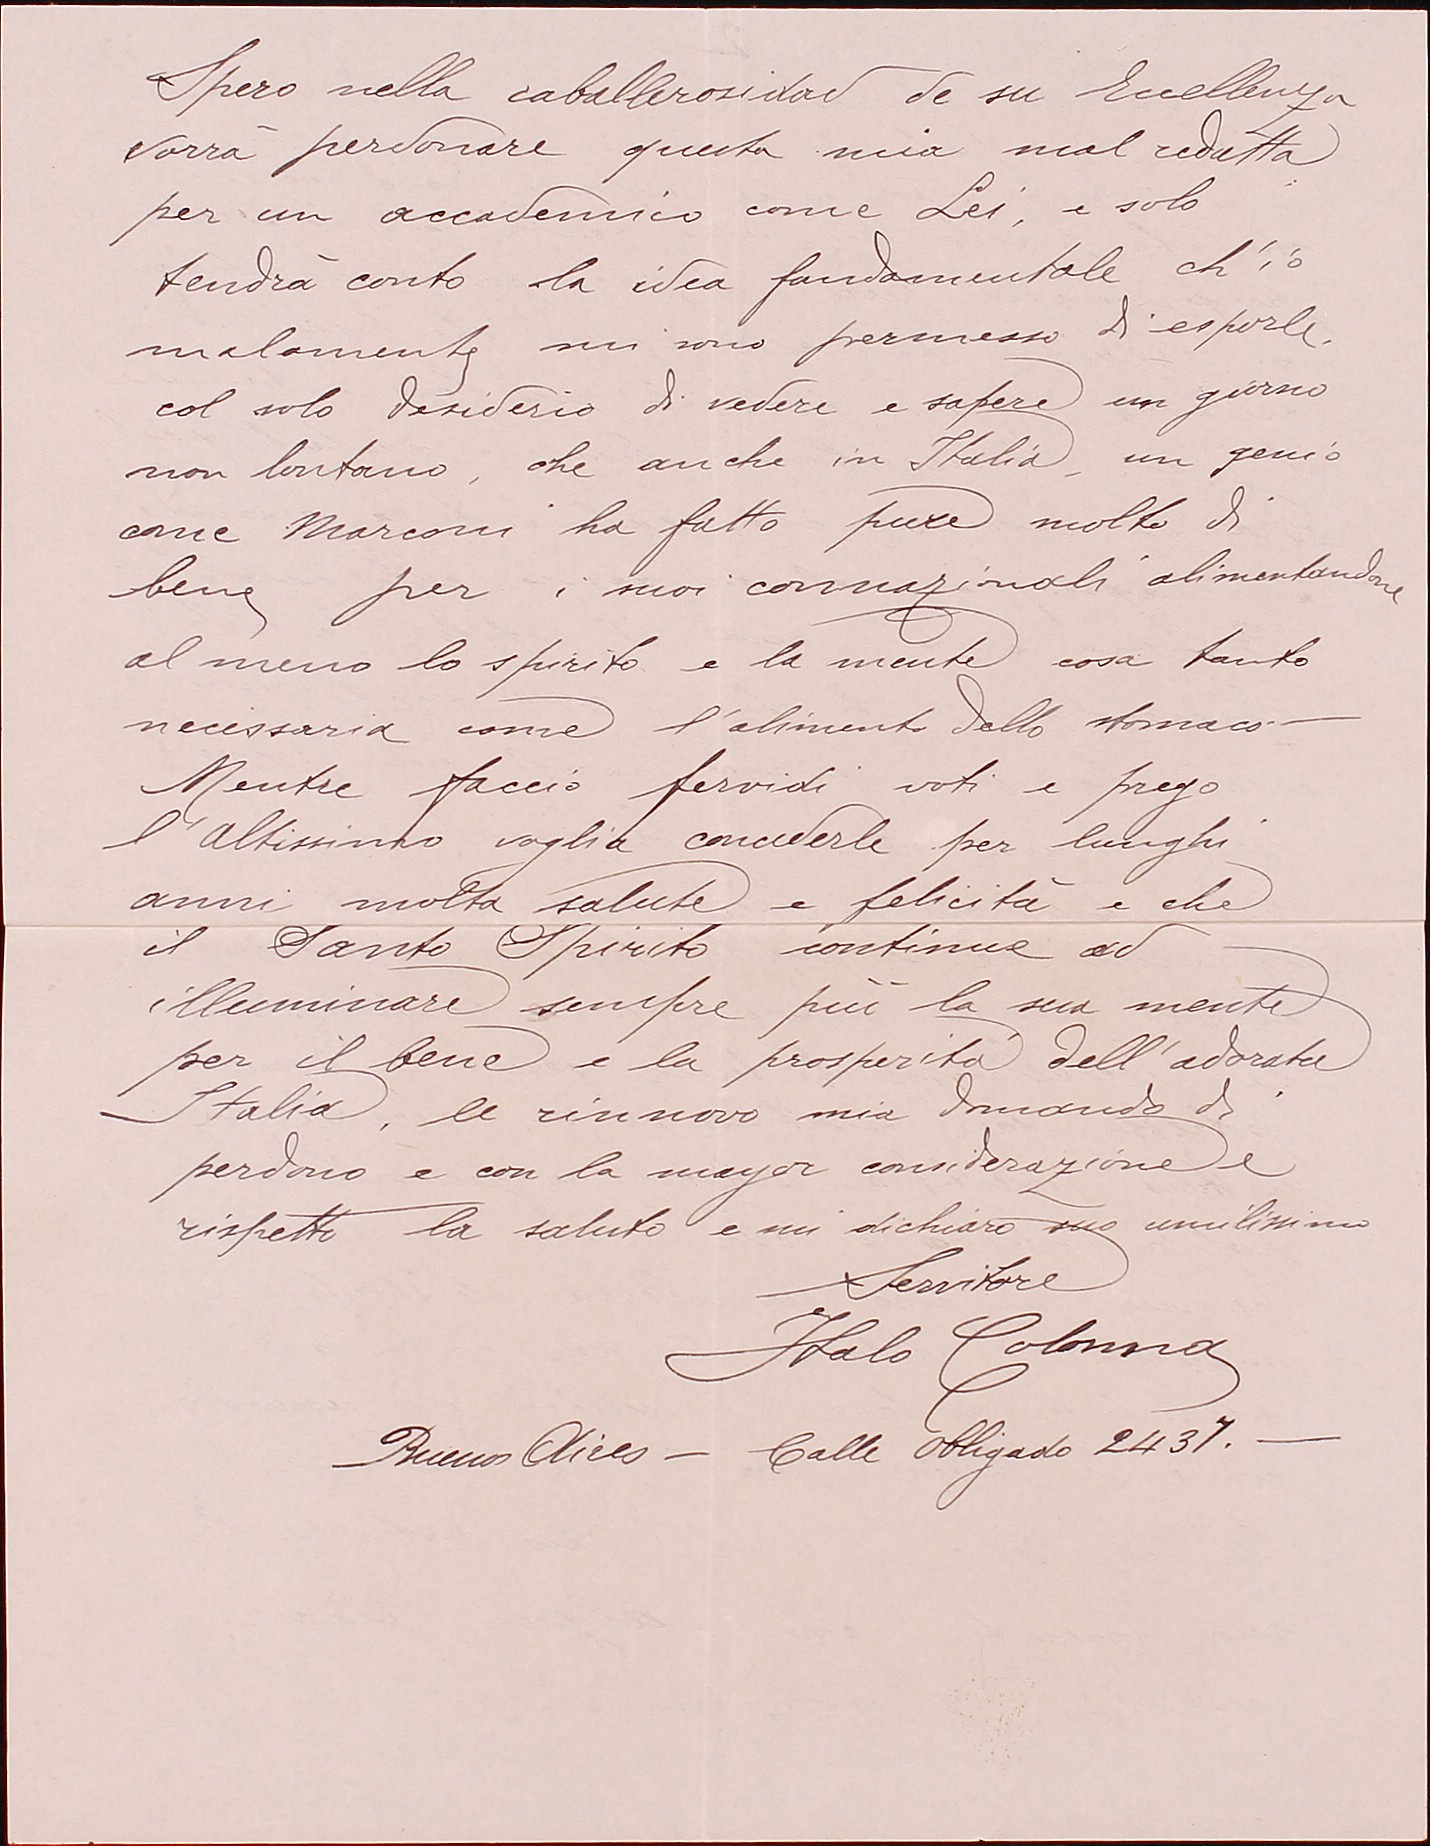 Spero nella caballerosidad de su Eccellenza
vorrà perdonare questa mia mal redatta
per un accademico come Lei, e solo
tendrà conto la idea fondamentale ch'io
malamente mi sono permesso di esporle,
col solo desiderio di vedere e sapere un giorno
non lontano, che anche in Italia, un genio
come Marconi ha fatto pure molto di
bene per i suoi connazionali alimentandone
al meno lo spirito e la mente cosa tanto
necessaria come l'alimento dello stomaco —
Mentre faccio fervidi voti e prego
l'Altissimo voglia concederle per lunghi
anni molta salute e felicità e che
il Santo Spirito continue ad
illuminare sempre più la sua mente
per il bene e la prosperità dell'adorata
Italia, le rinnovo mia domanda di
perdono e con la mayor considerazione e
rispetto la saluto e mi dichiaro suo umilissimo
Servitore
Italo Colonna
Buenos Aires — Calle Obligado 2437. —